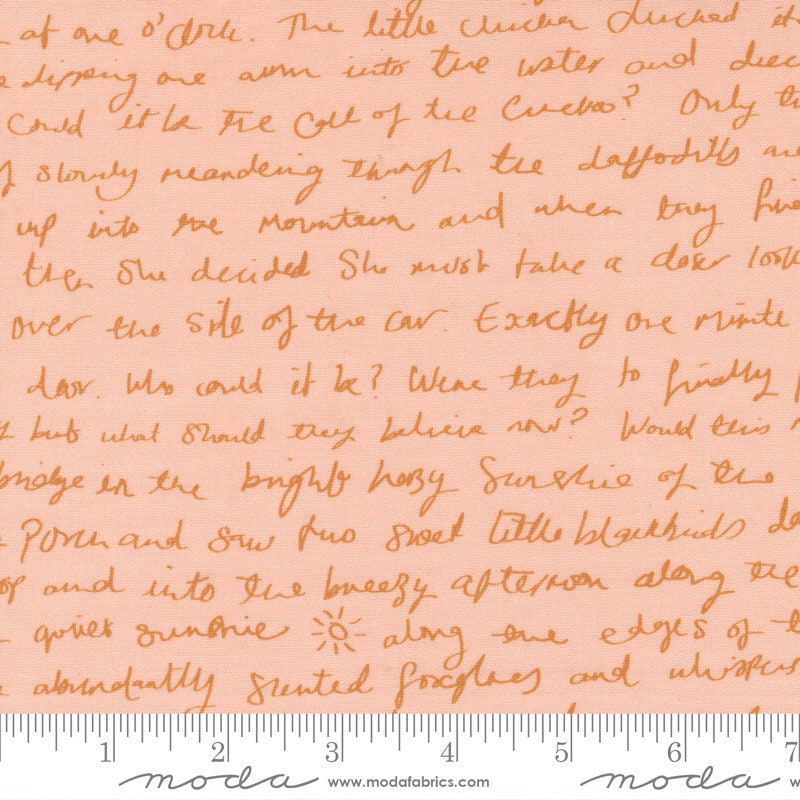 at one o'clock. The little chicken clucked it
dipping one arm into the water and
Could it be the call of the Cuckoo? Only th
slowly meandering through the daffodills
up into the mountain and when they fin
then She decided She must take a closer look
over the side of the car. Exactly one minute
door. Who could it be? Were they to finally
but what should they believe now? Would this
bridge in the bright hazy Sunshie of the
Porch and saw two sweet little blackbirds
and into the breezy afternoon along the
quiet sunshie along the edges of t
abundantly scented foxgloves and whispers
1 2 3 4 5 6 7
moda www.modafabrics.com moda w